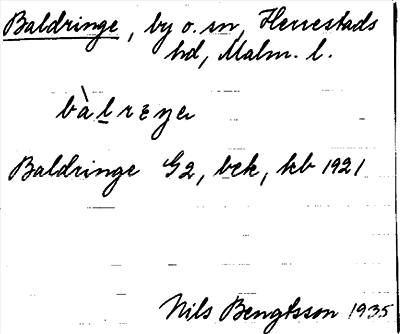 Baldringe, by o. sn, Herrestads
hd, Malm. l.
Baldringe G2, bek, kb 1921
Nils Bengtsson 1935